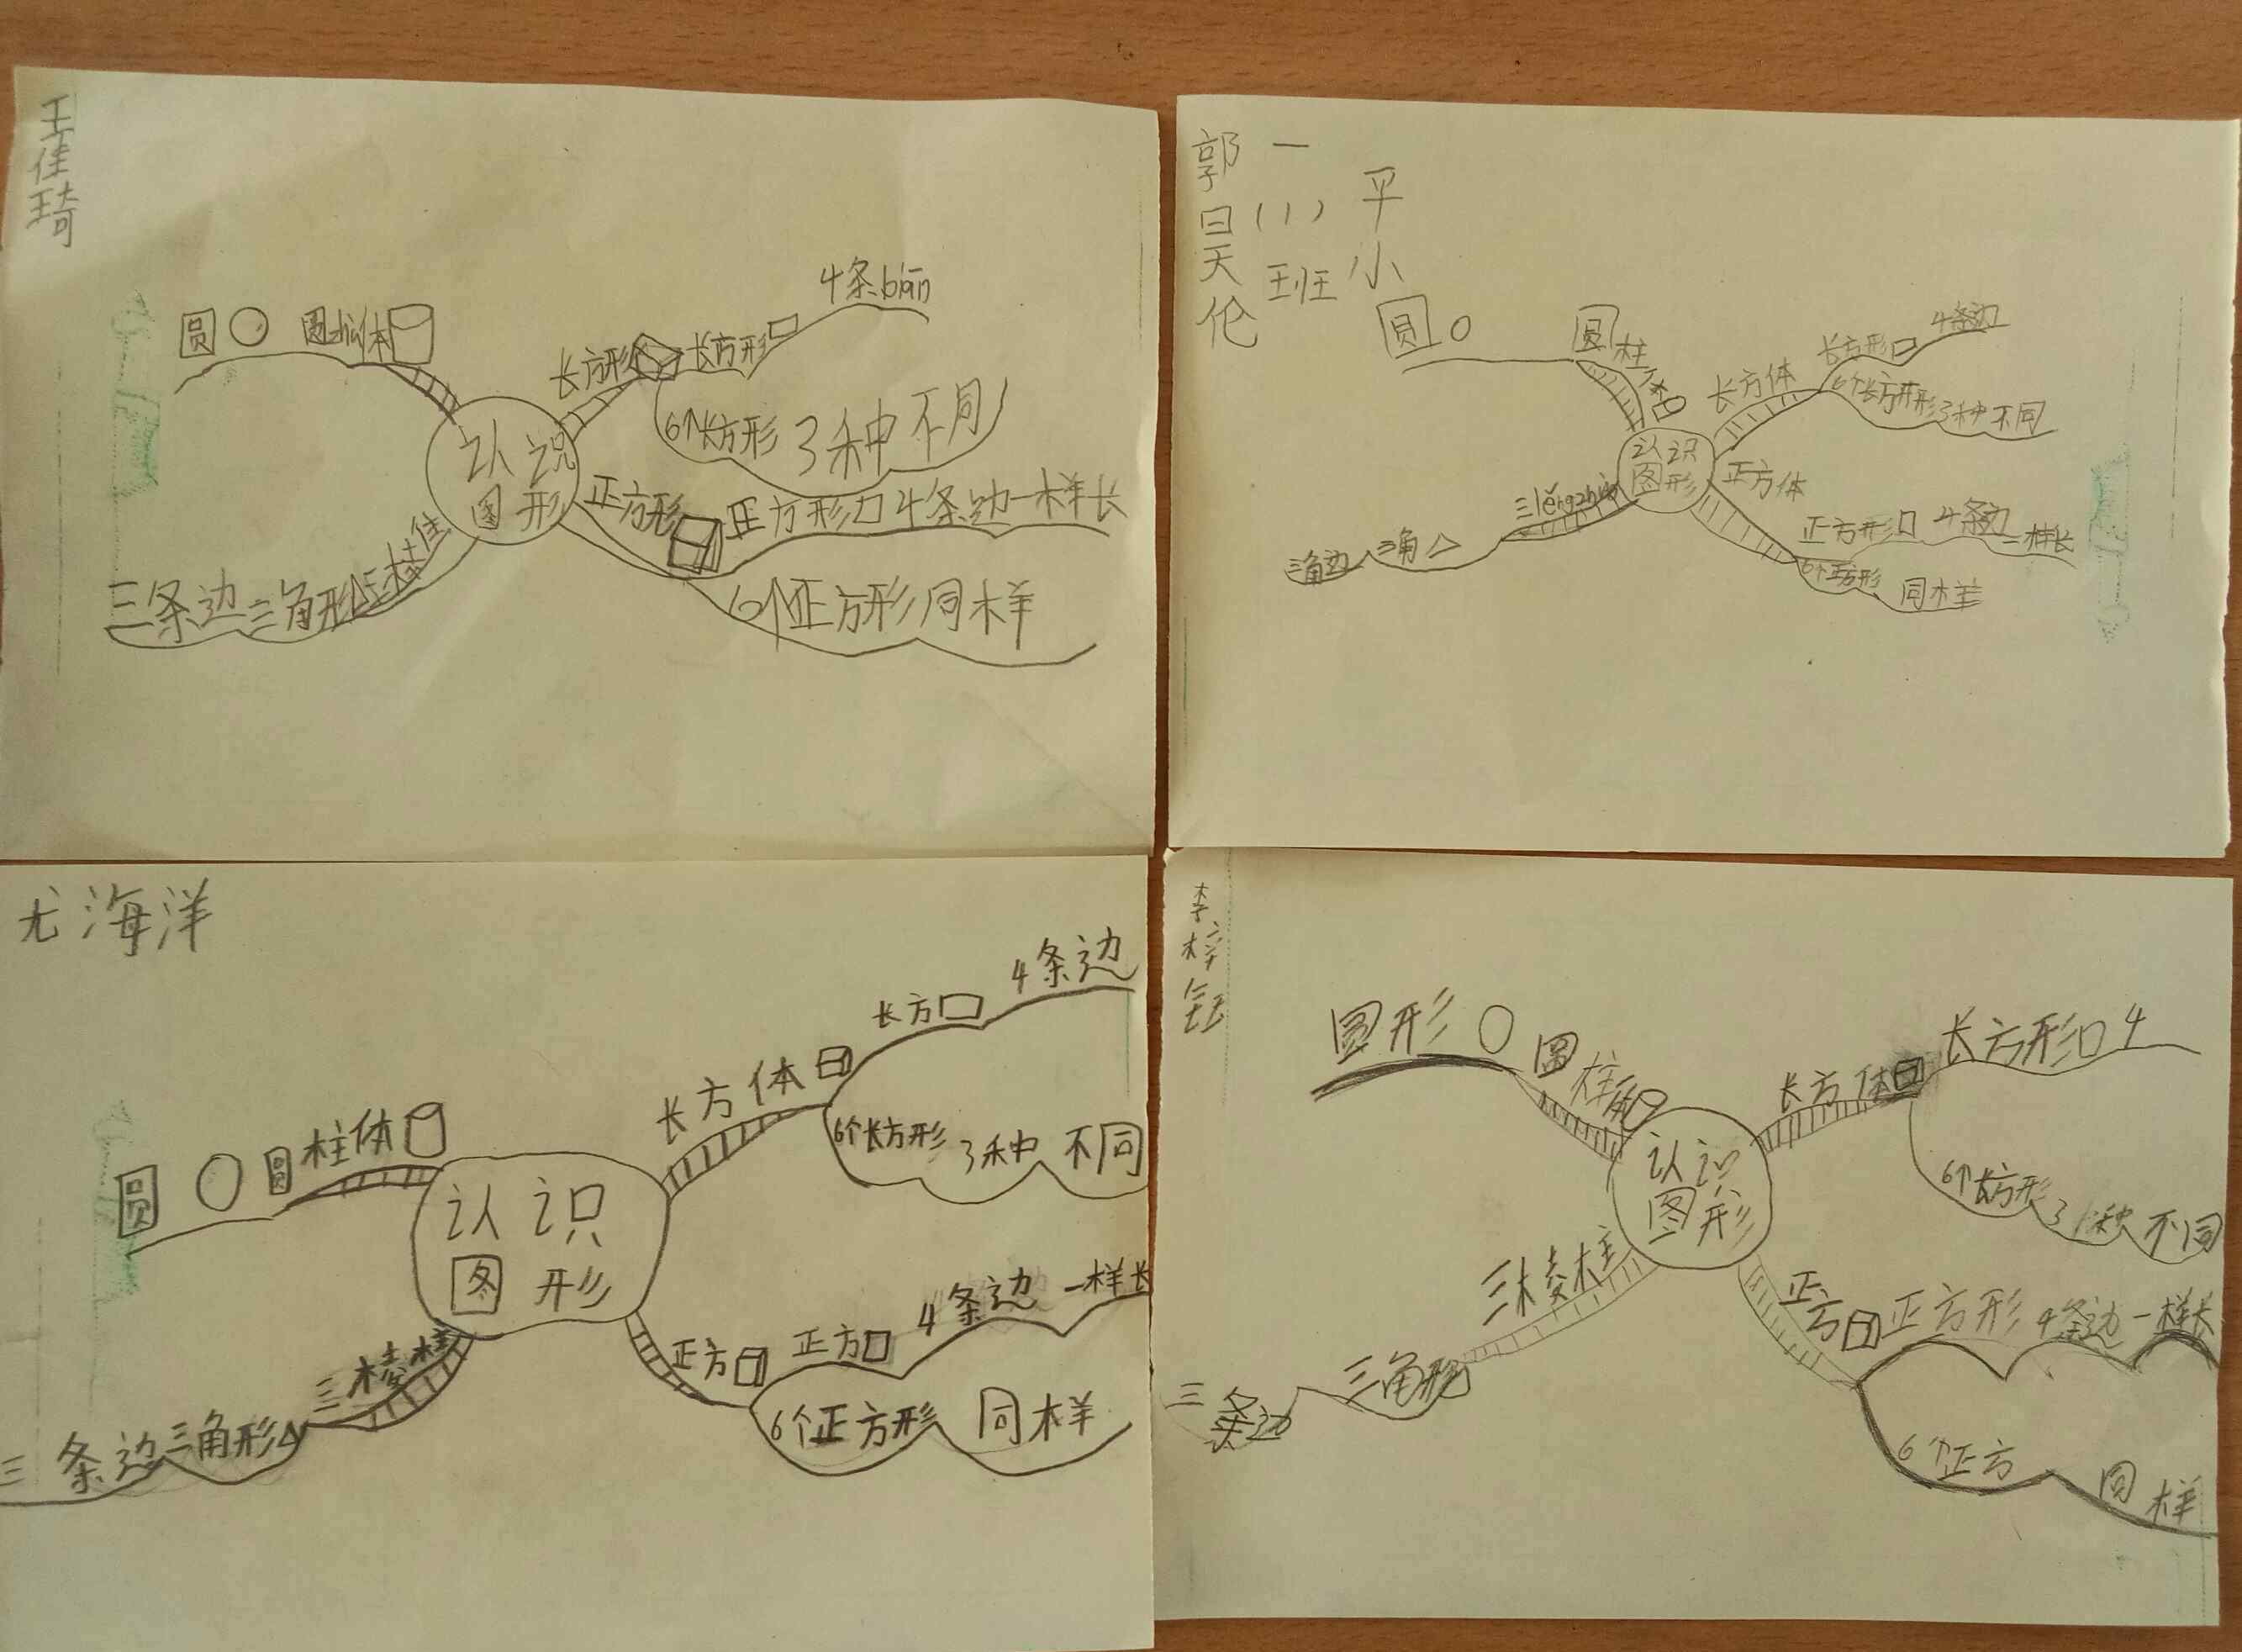 王佳琦
圆
圆zhù体
长方形
长方形
4条biān
6个长方形
3种
不同
认识
图形
正方形
正方形
4条边
一样长
6个正方形
同样
三棱住
三角形
三条边
郭昊天伦
一(1)班
平小
圆
圆柱体
长方体
长方形
4条边
6个长方形
3种
不同
认识
图形
正方体
正方形
4条边
一样长
6个正方形
同样
三角
三角边
尤海洋
圆
圆柱体
长方体
长方
4条边
6个长方形
3种
不同
认识
图形
正方
正方
4条边
一样长
6个正方形
同样
三棱柱
三角形
三条边
李梓钰
圆形
圆柱体
长方体
长方形
4
6个长方形
3种
不同
认识
图形
正方
正方形
4条边
一样长
6个正方
同样
三棱柱
三角形
三条边